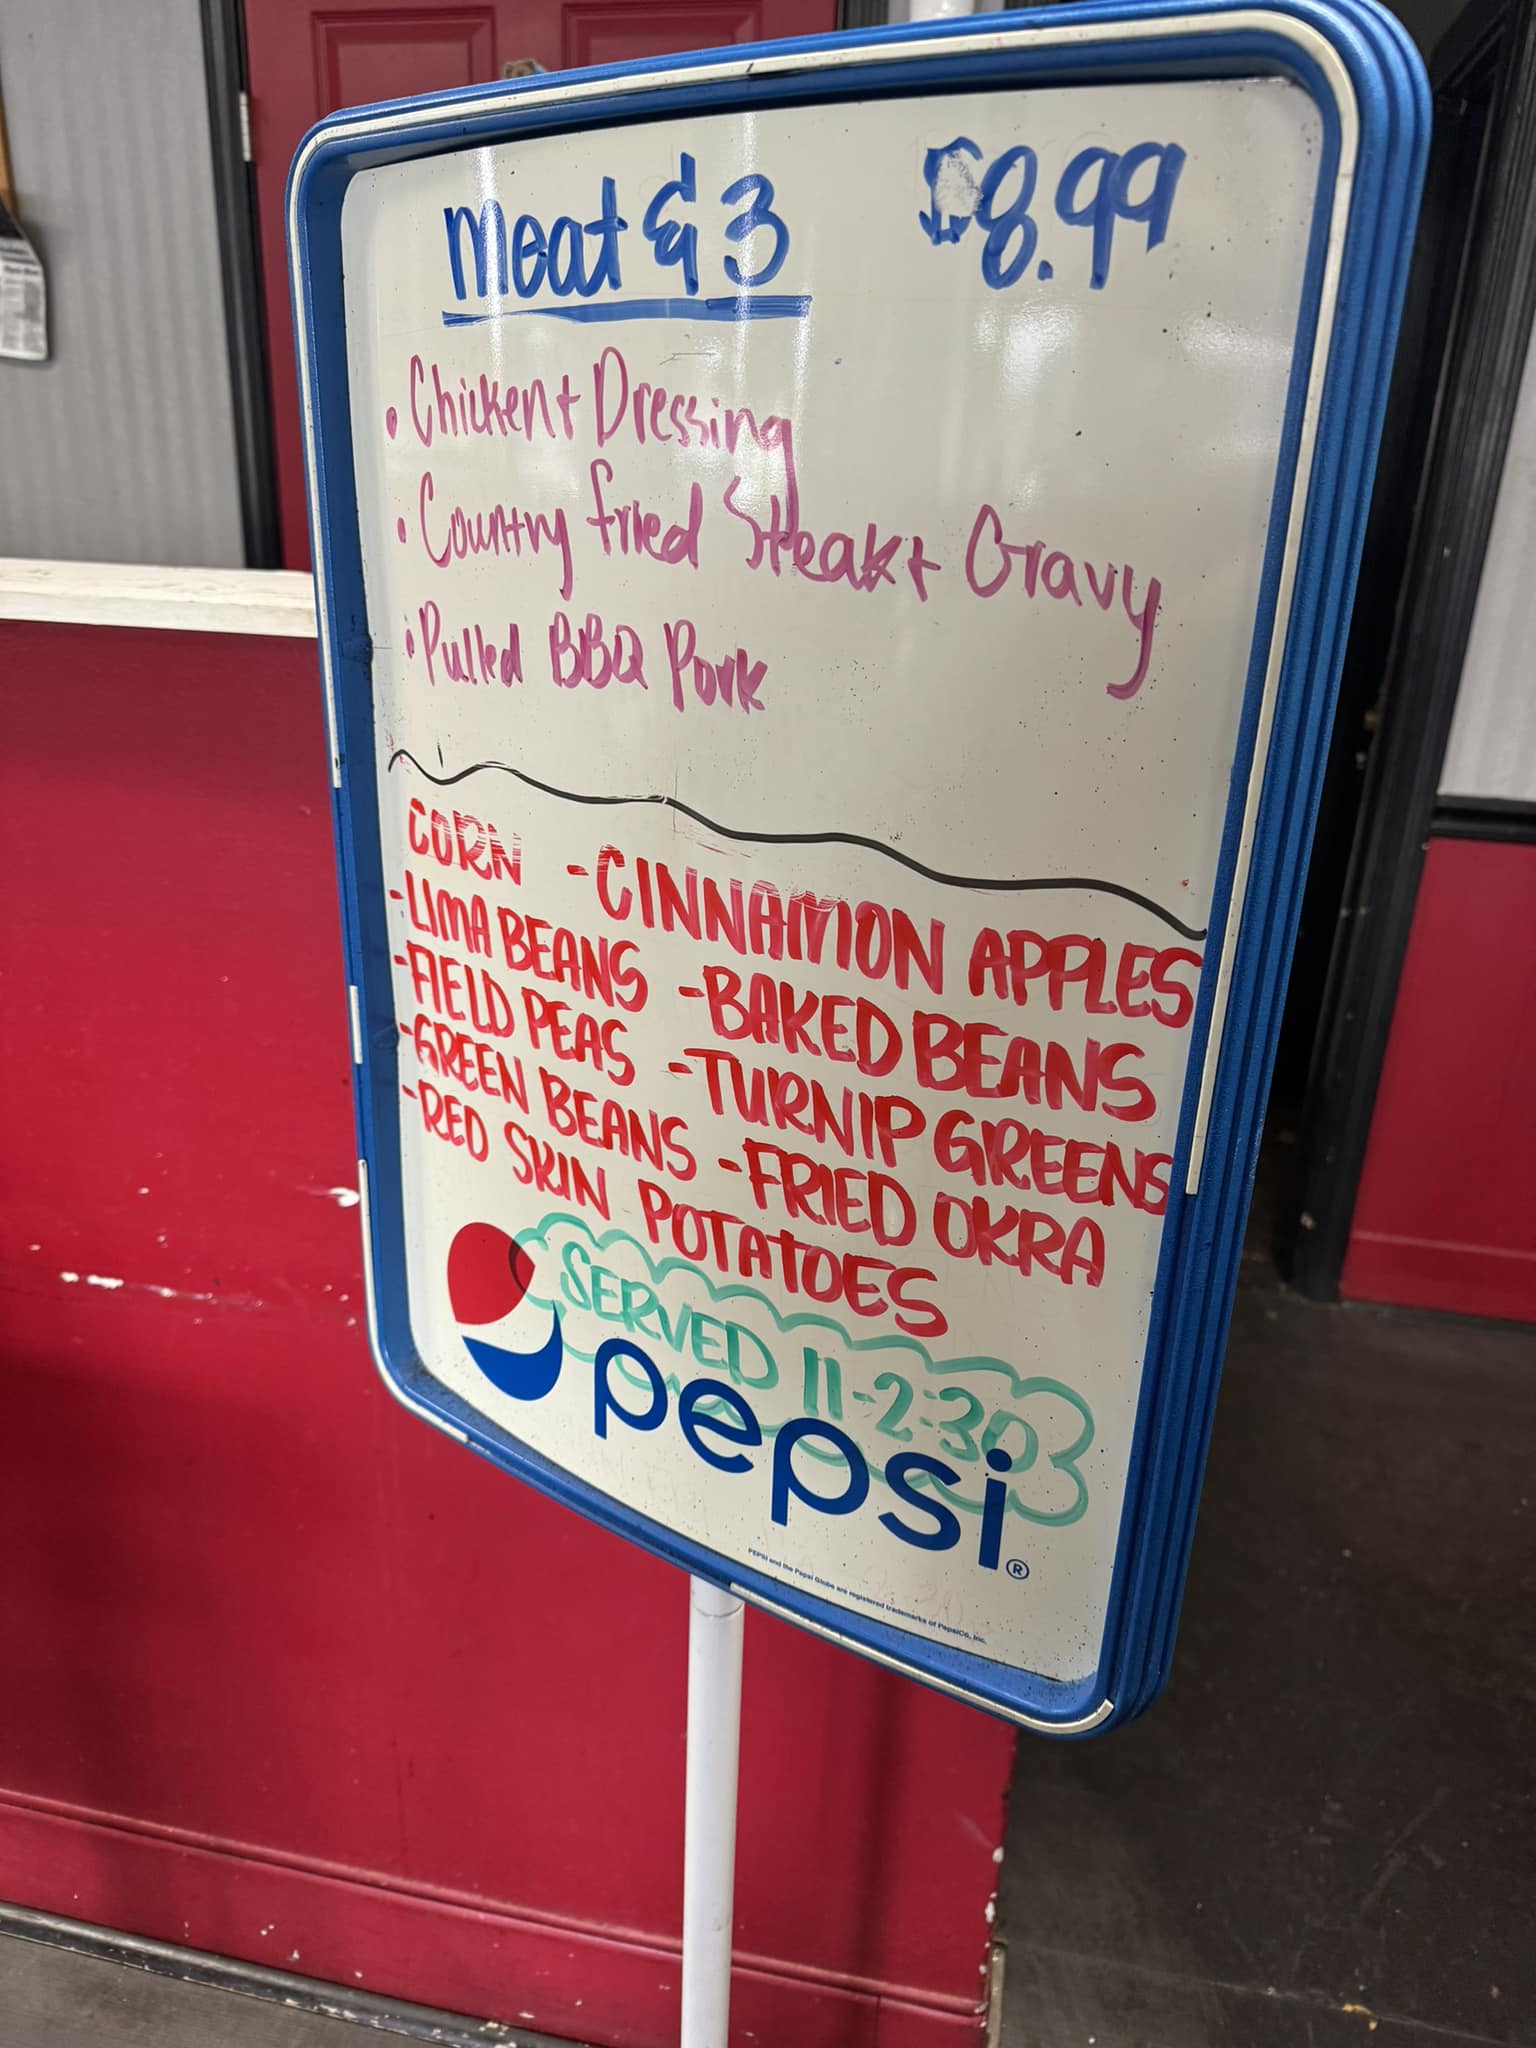 Meat & 3 $8.99
• Chicken + Dressing
• Country fried Steak + Gravy
• Pulled BBQ Pork
CORN - CINNAMON APPLES
- LIMA BEANS - BAKED BEANS
- FIELD PEAS - TURNIP GREENS
- GREEN BEANS - FRIED OKRA
- RED SKIN POTATOES
SERVED 11-2:30
pepsi®
PEPSI and the Pepsi Globe are registered trademarks of PepsiCo, Inc.